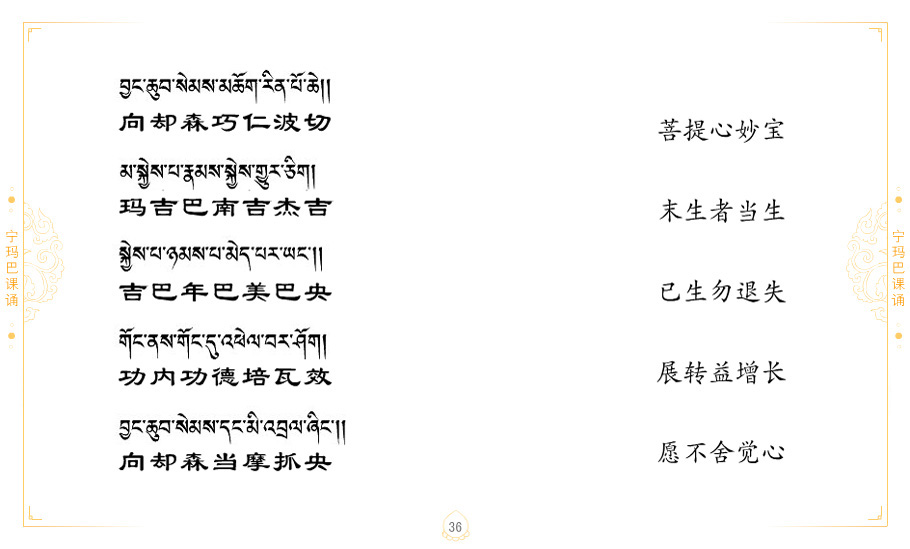 བྱང་ཆུབ་སེམས་མཆོག་རིན་པོ་ཆེ།།
向却森巧仁波切
菩提心妙宝
མ་སྐྱེས་པ་རྣམས་སྐྱེས་གྱུར་ཅིག།
玛吉巴南吉杰吉
末生者当生
སྐྱེས་པ་ཉམས་པ་མེད་པར་ཡང་།།
吉巴年巴美巴央
已生勿退失
གོང་ནས་གོང་དུ་འཕེལ་བར་ཤོག།
功内功德培瓦效
展转益增长
བྱང་ཆུབ་སེམས་དང་མི་འབྲལ་ཞིང་།།
向却森当摩抓央
愿不舍觉心
宁玛巴课诵
宁玛巴课诵
36